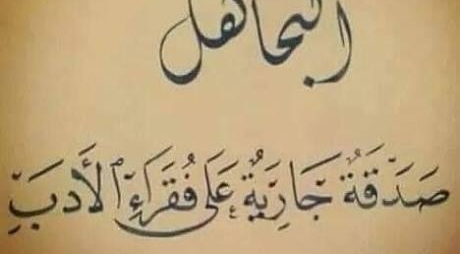 التجاهل
صَدَقَةٌ جَارِيَةٌ عَلَى فُقَرَاءِ الأَدَبِ